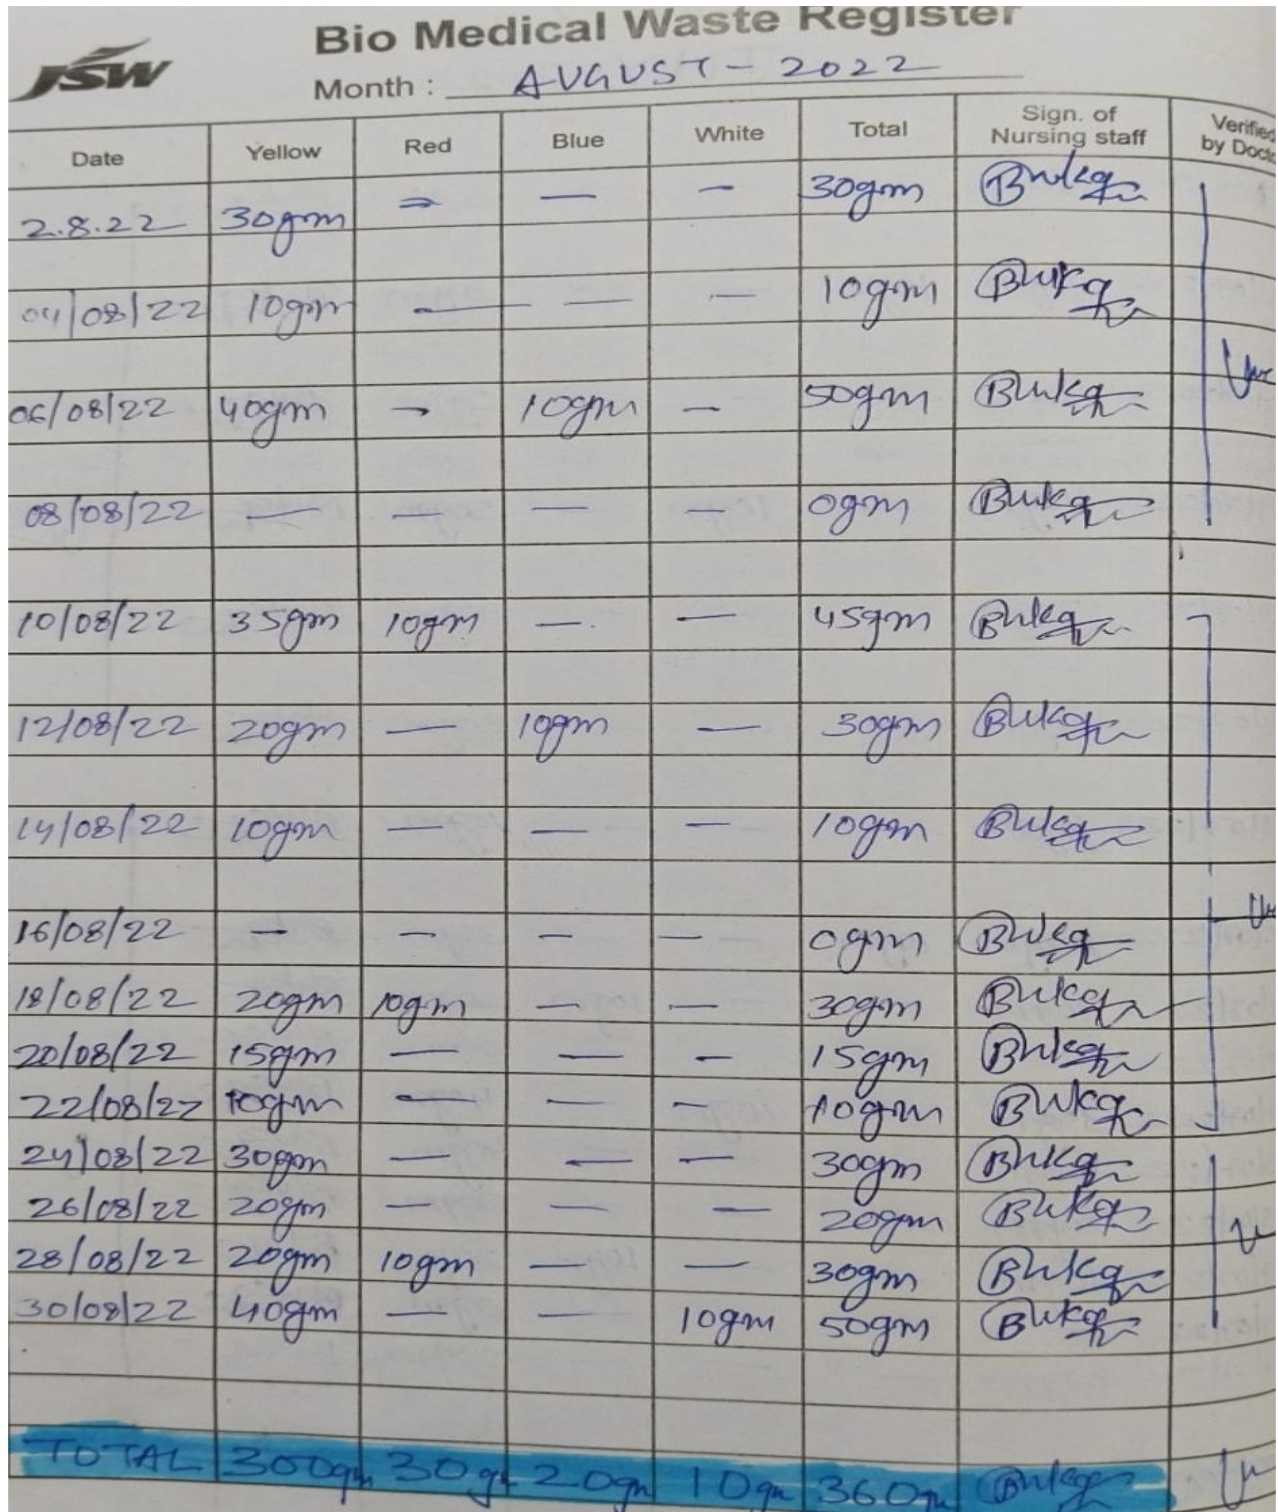 Bio Medical Waste Register
JSW
Month : AUGUST - 2022
Date Yellow Red Blue White Total Sign. of Nursing staff Verified by Doct
2.8.22 30gm — — — 30gm
04/08/22 10gm — — — 10gm
06/08/22 40gm — 10gm — 50gm
08/08/22 — — — — 0gm
10/08/22 35gm 10gm — — 45gm
12/08/22 20gm — 10gm — 30gm
14/08/22 10gm — — — 10gm
16/08/22 — — — — 0gm
18/08/22 20gm 10gm — — 30gm
20/08/22 15gm — — — 15gm
22/08/22 10gm — — — 10gm
24/08/22 30gm — — — 30gm
26/08/22 20gm — — — 20gm
28/08/22 20gm 10gm — — 30gm
30/08/22 40gm — — 10gm 50gm
TOTAL 300gm 30gm 20gm 10gm 360gm